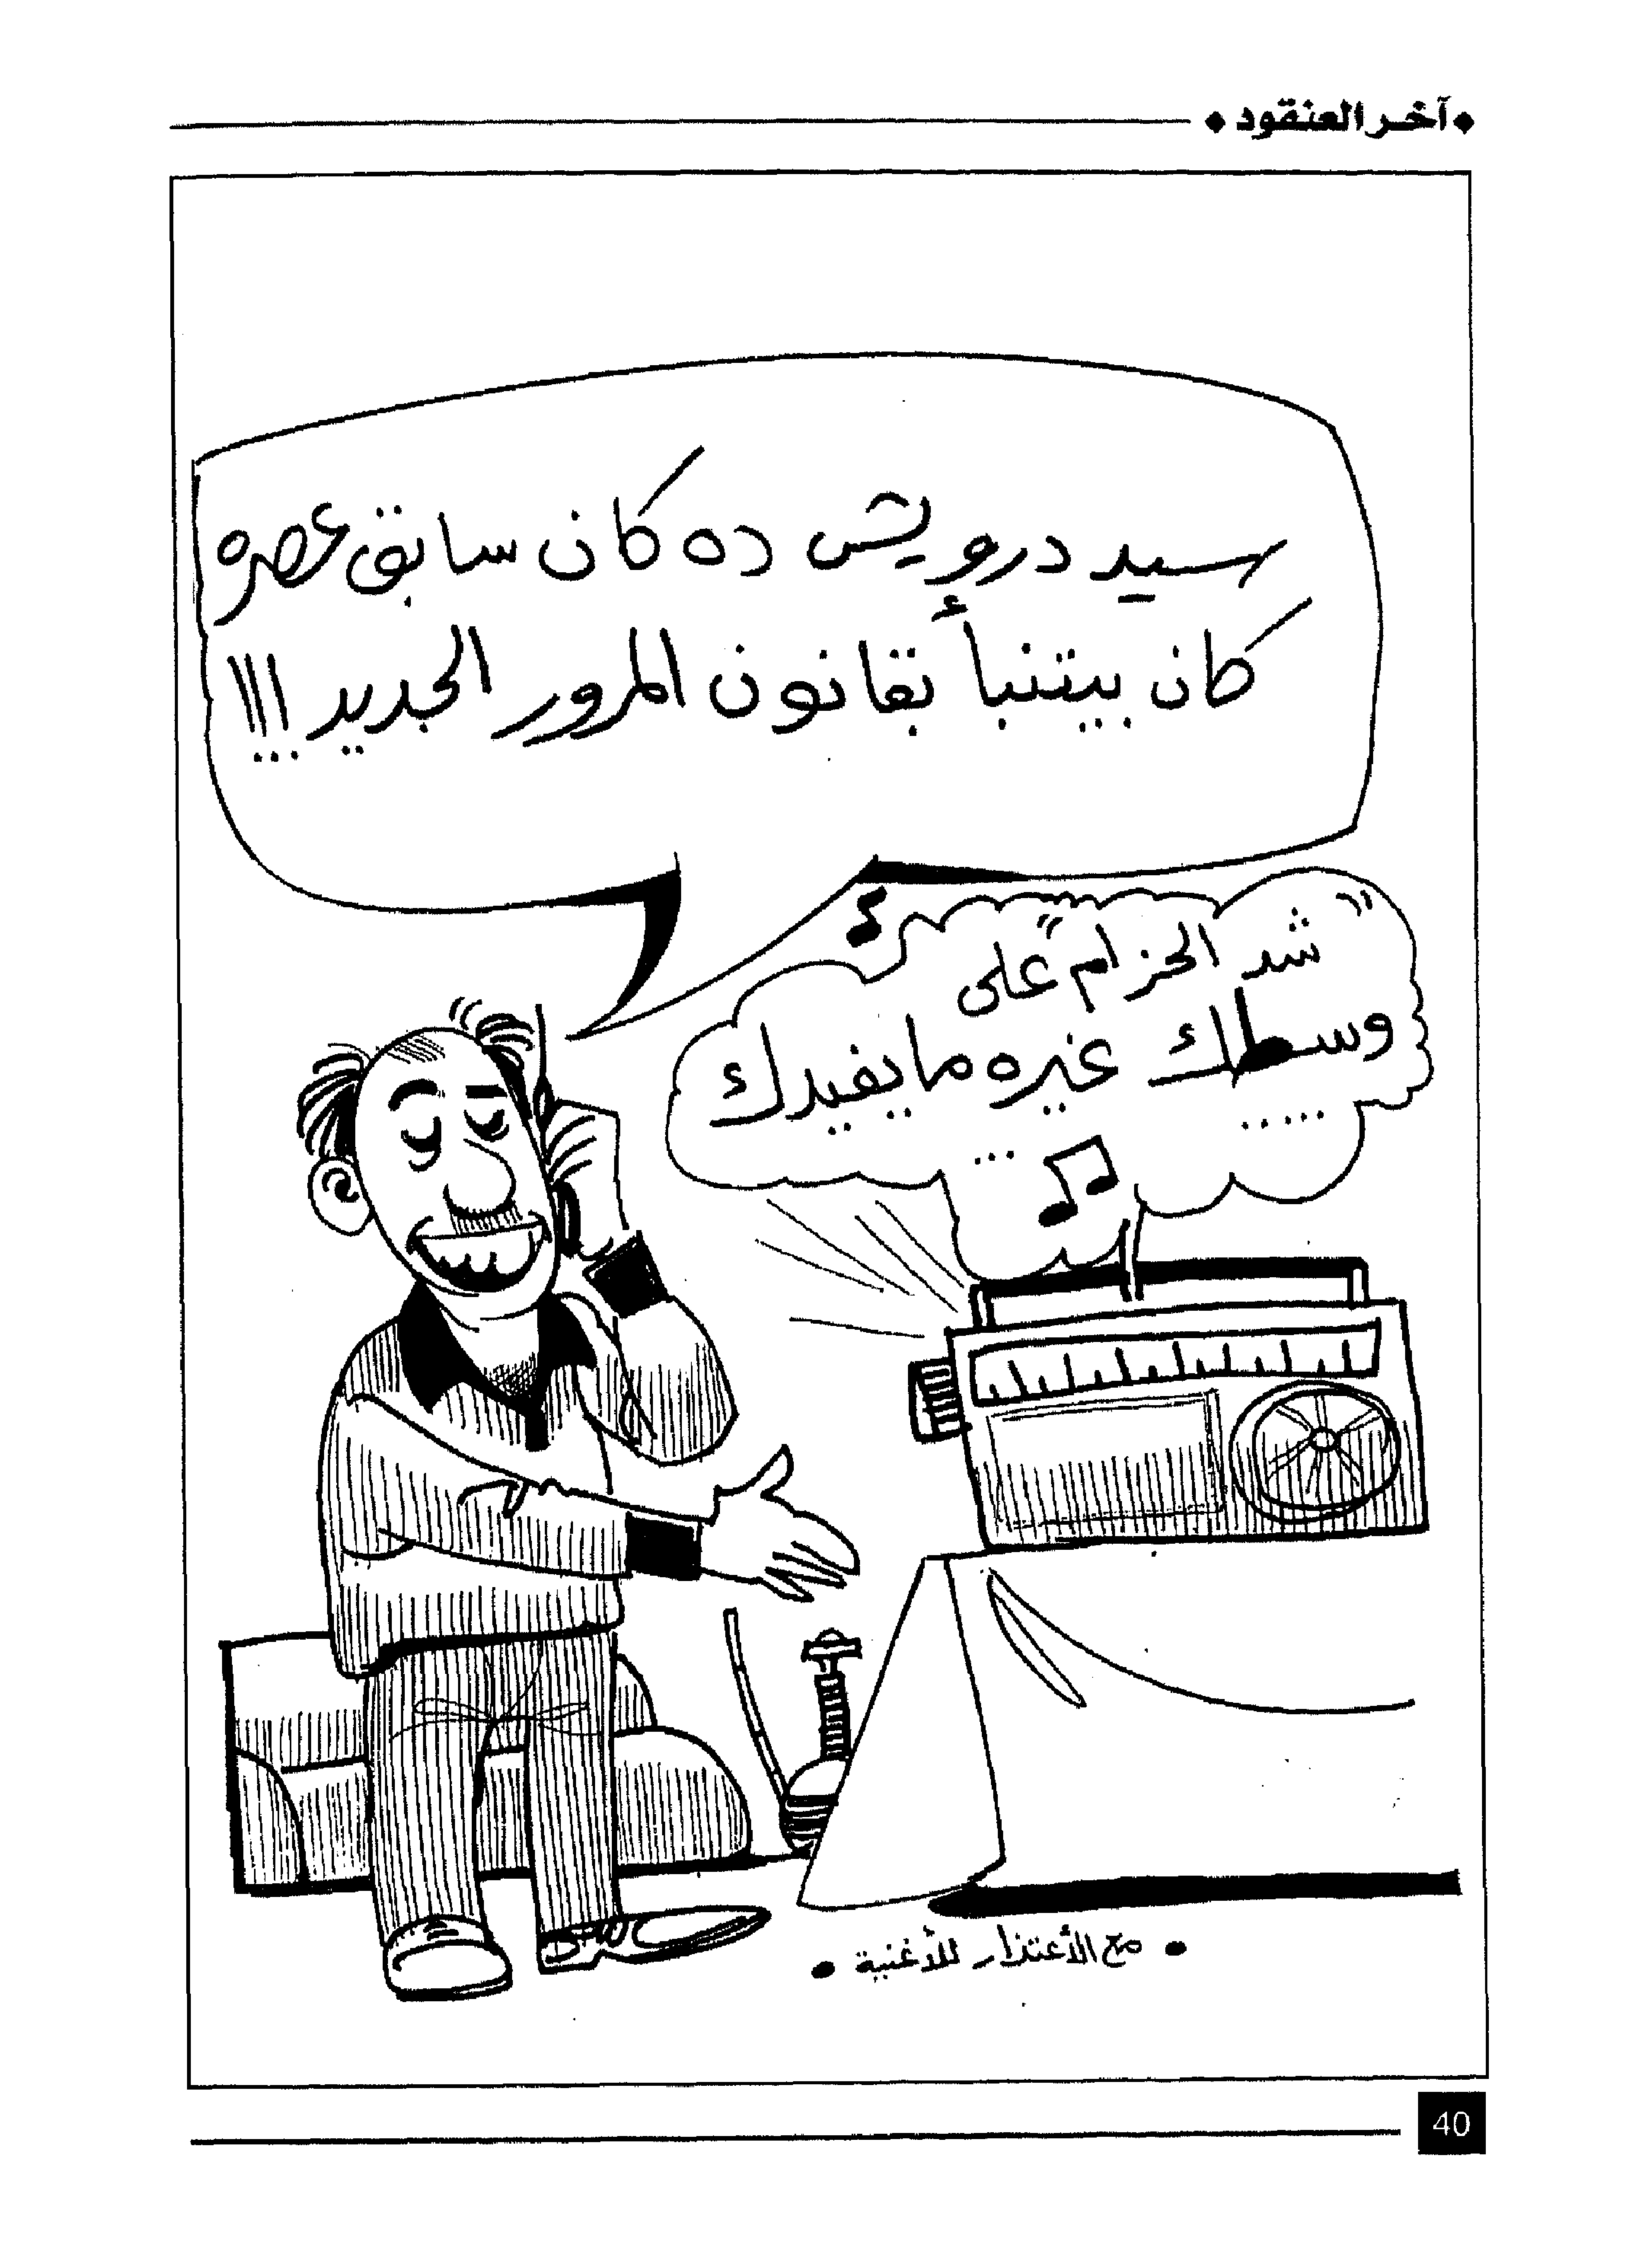 آخر العنقود
سيد درويش ده كان سابق عصره
كان بيتنبأ بقانون المرور الجديد !!!
شد الحزام على
وسطك غيره ما يفيدك
.....
...
مع الأعتذار للأغنية
40